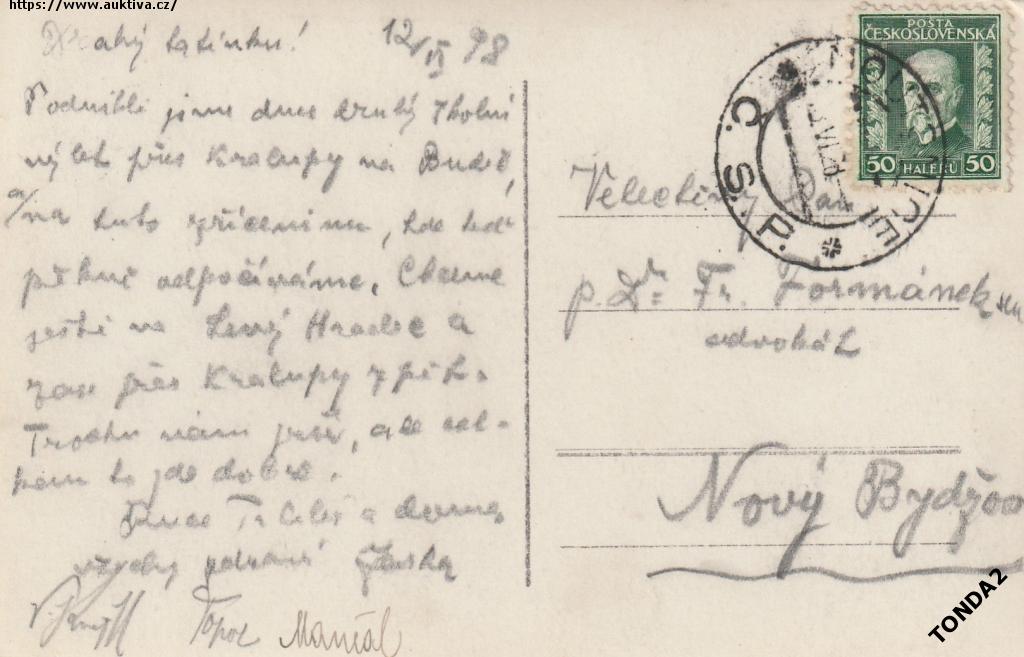 https://www.auktiva.cz/
Drahý tatínku! 12/VI 98
Podnikli jsme dnes druhý školní
výlet přes Kralupy na Budeč,
a/na tuto zříceninu, kde teď
pěkně odpočíváme. Chceme
ještě na Levý Hradec a
zase přes Kralupy zpět.
Trochu nám prší, ale cel-
kem to jde dobře.
a doma
všechny
Topol Maniál
POŠTA
ČESKOSLOVENSKÁ
50 HALÉŘŮ 50
Č. S. P.
Velectěný Pan
p. Dr. Fr. Formánek
advokát
Nový Bydžov
TONDA2